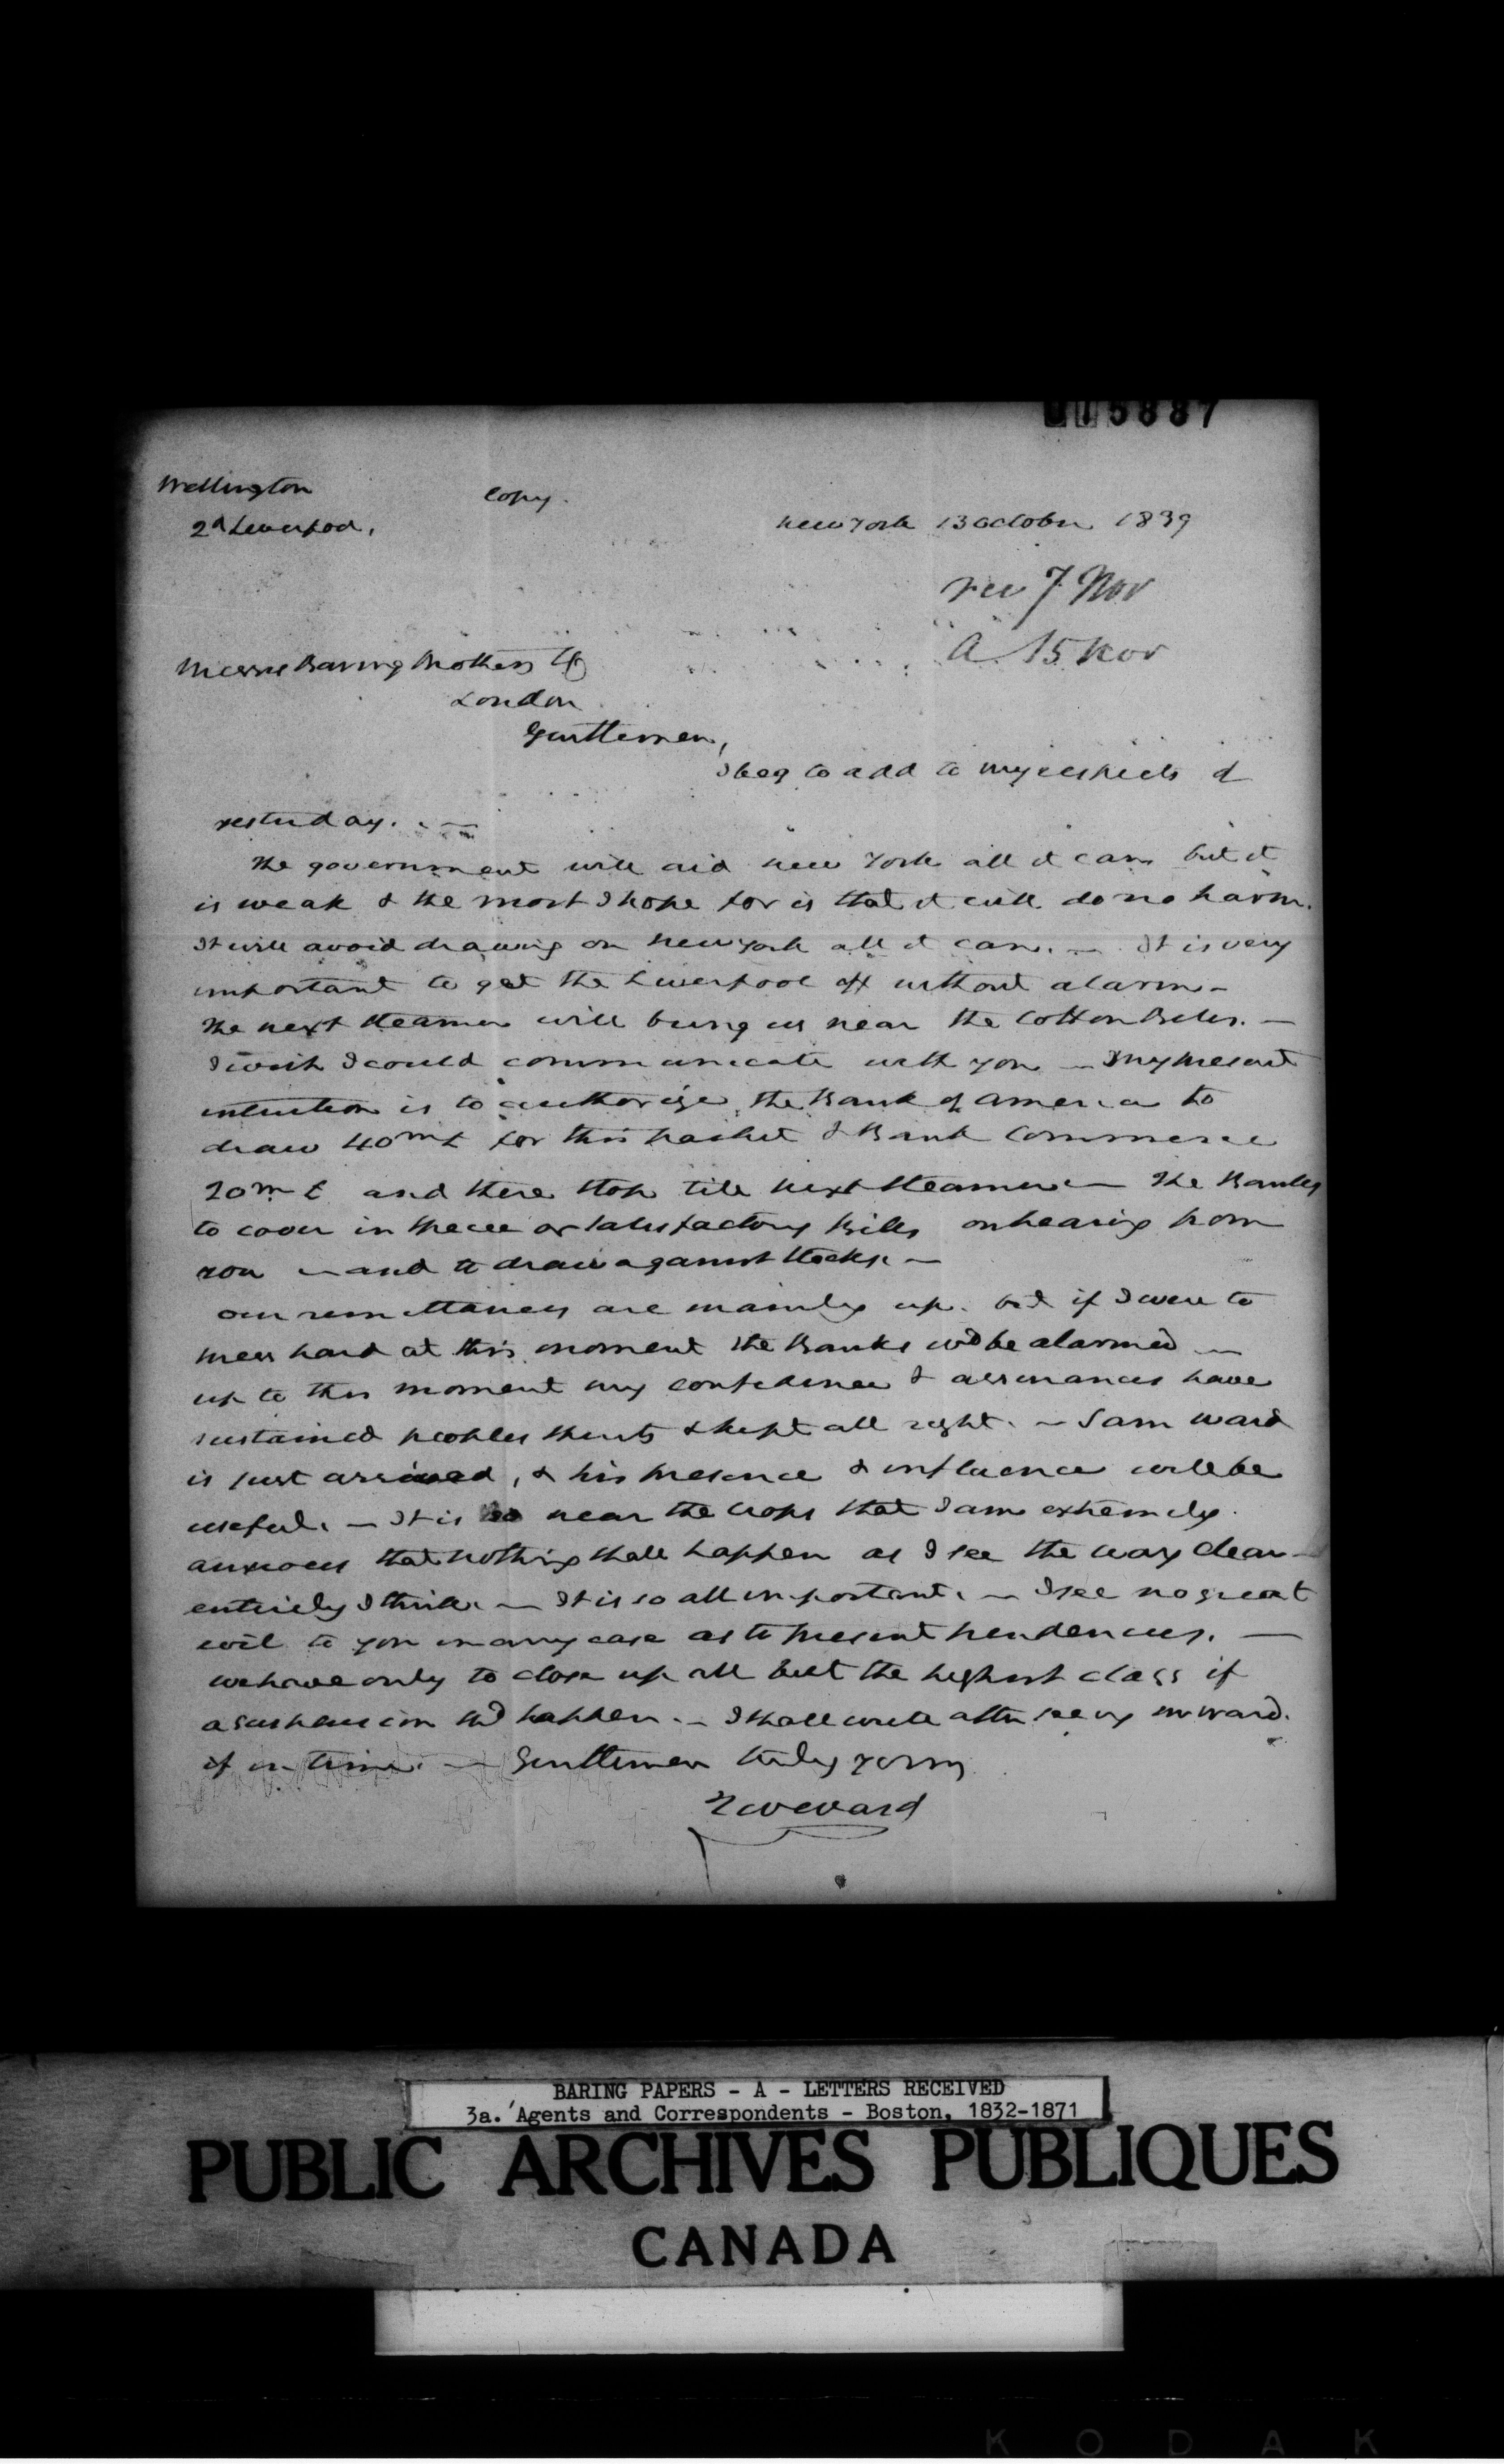 015887
Wellington
Copy.
2d Liverpool,
New York 13 October 1839
rec 7 Nov
A. 15 Nov
Messrs Baring Brothers & Co
London
Gentlemen,
I beg to add to my respects of
yesterday. —
The government will aid New York all it can but it
is weak & the most I hope for is that it will do no harm.
It will avoid drawing on New York all it can. — It is very
important to get the Liverpool off without alarm —
The next steamer will bring us near the Cotton Bills. —
I wish I could communicate with you — My present
intention is to authorize the Bank of America to
draw 40m £ for this packet & Bank Commerce
20m £ and there stop till next steamer — The Banks
to cover in specie or satisfactory Bills on hearing from
you — and to draw against stocks. —
Our remittances are mainly up. but if I were to
press hard at this moment the Banks wd be alarmed —
up to this moment my confidence & assurances have
sustained peoples spirits & kept all right. — Sam Ward
is just arrived, & his presence & influence will be
useful. — It is so near the crops that I am extremely
anxious that nothing shall happen as I see the way clear —
entirely I think. — It is so all important. — I see no great
evil to you in any case as to present pendencies. —
we have only to close up all but the highest class if
a suspension shd happen. — I shall write after seeing Mr Ward.
if in time. — Gentlemen truly yours
T W Ward
BARING PAPERS - A - LETTERS RECEIVED
3a. Agents and Correspondents - Boston, 1832-1871
PUBLIC ARCHIVES PUBLIQUES
CANADA
KODAK